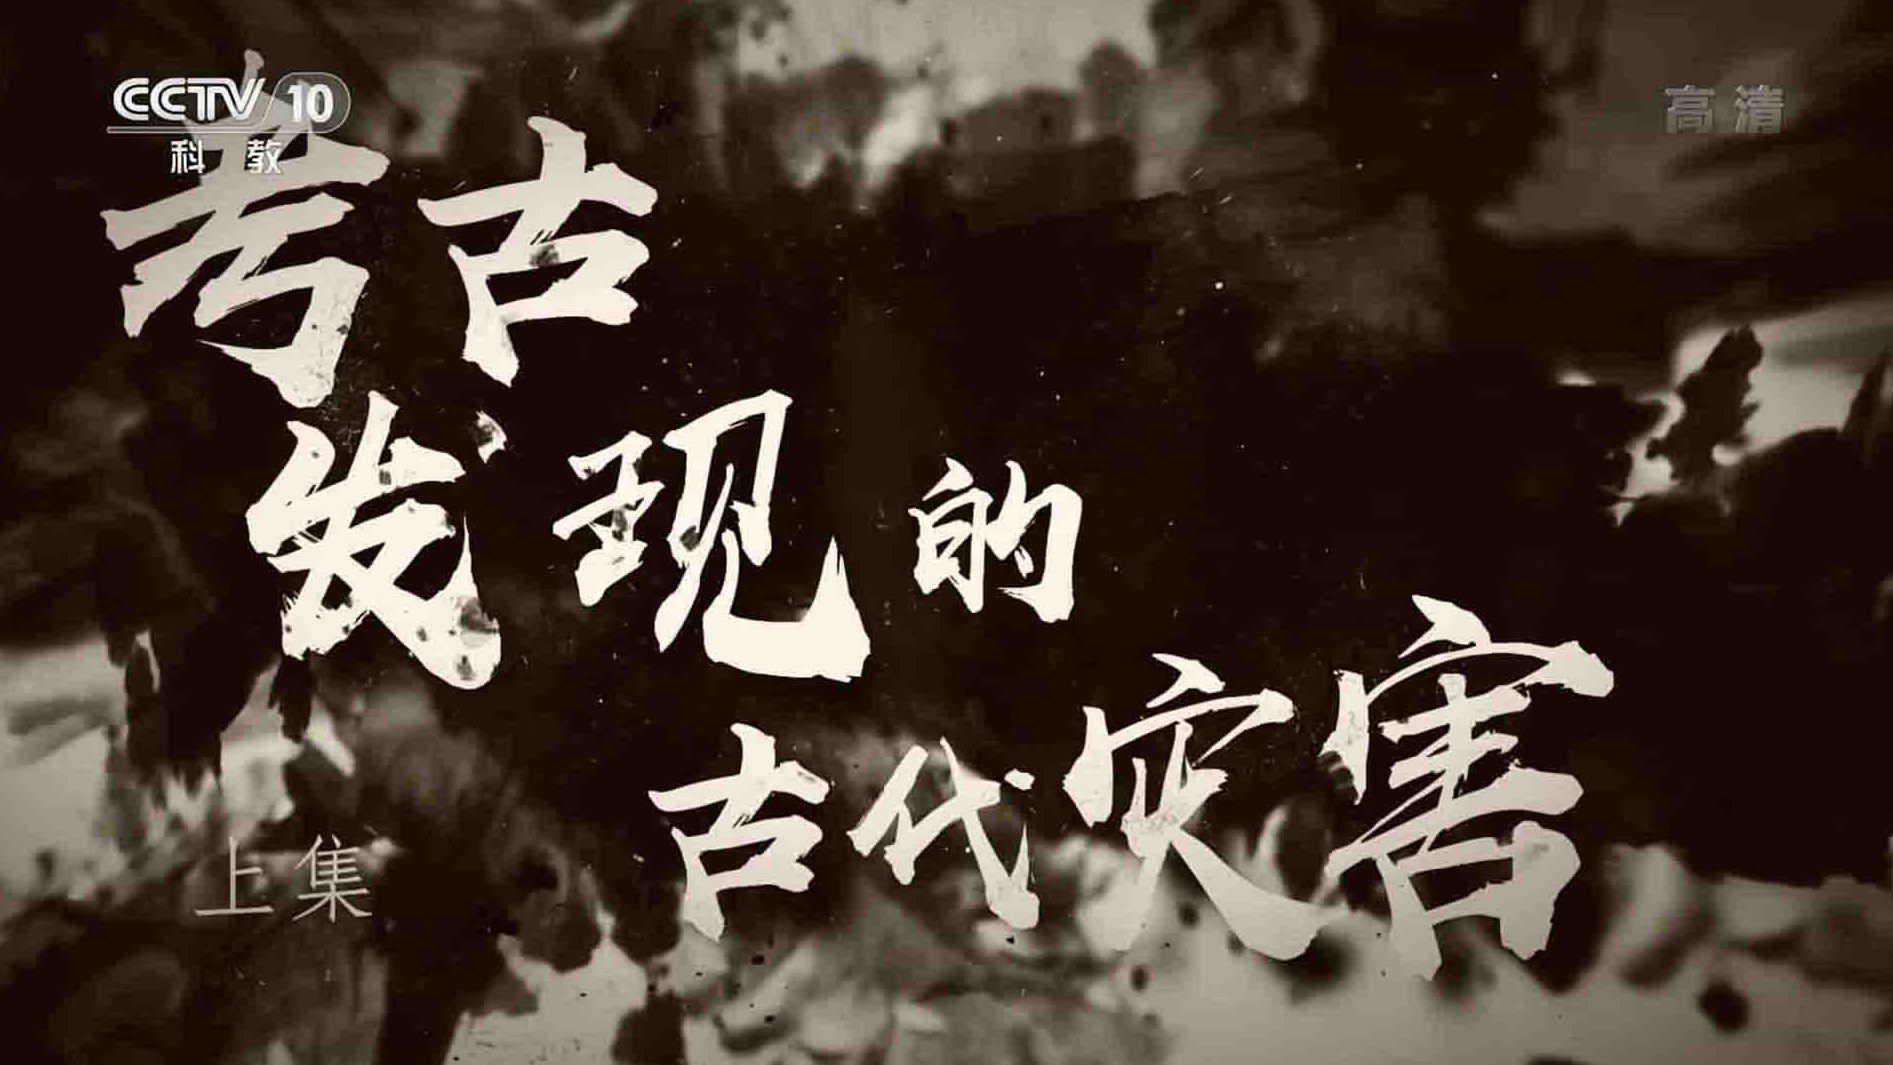 CCTV 10
科教
高清
考古
发现的
古代灾害
上集